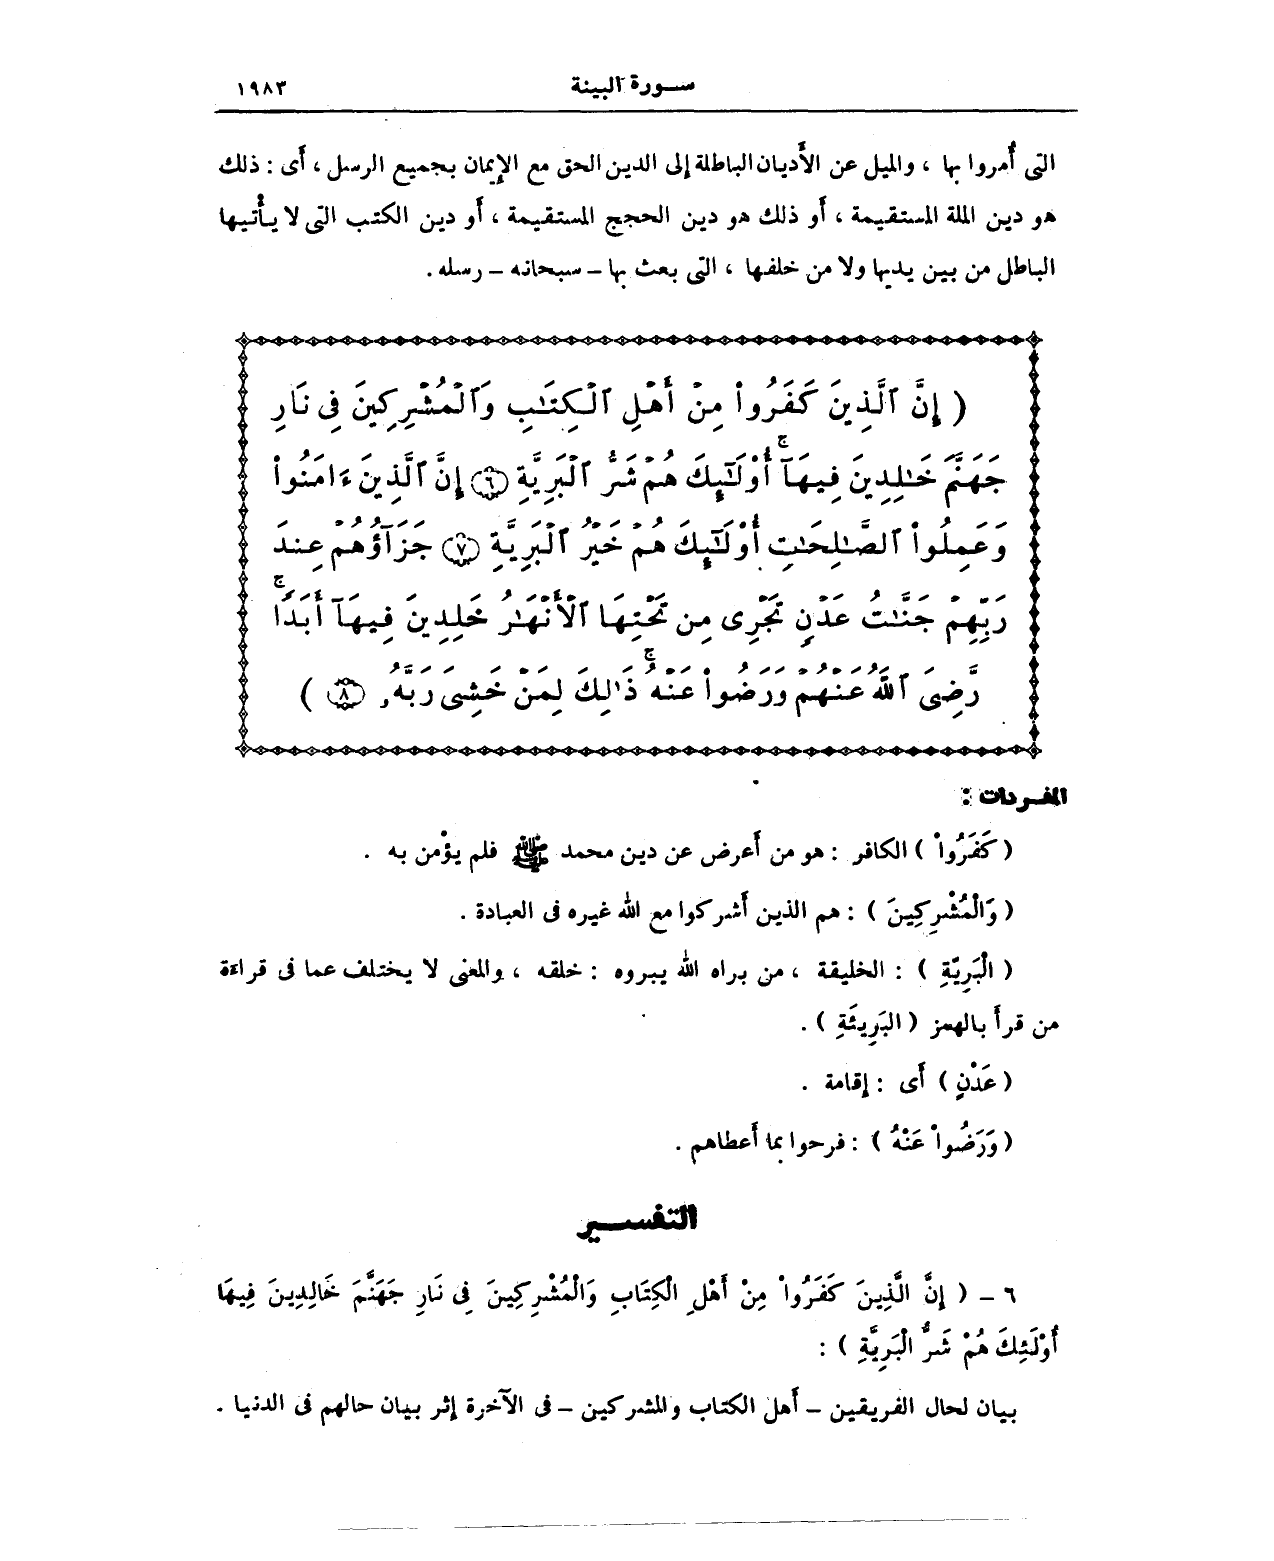 سـورة البينة
١٩٨٣
التى أُمروا بها ، والميل عن الأَديان الباطلة إلى الدين الحق مع الإِيمان بجميع الرسل ، أَى : ذلك
هو دين الملة المستقيمة ، أَو ذلك هو دين الحجج المستقيمة ، أَو دين الكتب التى لا يأْتيها
الباطل من بين يديها ولا من خلفها ، التى بعث بها – سبحانه – رسله .
( إِنَّ ٱلَّذِينَ كَفَرُوا۟ مِنْ أَهْلِ ٱلْكِتَٰبِ وَٱلْمُشْرِكِينَ فِى نَارِ
جَهَنَّمَ خَٰلِدِينَ فِيهَآ ۚ أُو۟لَٰٓئِكَ هُمْ شَرُّ ٱلْبَرِيَّةِ ٦ إِنَّ ٱلَّذِينَ ءَامَنُوا۟
وَعَمِلُوا۟ ٱلصَّٰلِحَٰتِ أُو۟لَٰٓئِكَ هُمْ خَيْرُ ٱلْبَرِيَّةِ ٧ جَزَآؤُهُمْ عِندَ
رَبِّهِمْ جَنَّٰتُ عَدْنٍ تَجْرِى مِن تَحْتِهَا ٱلْأَنْهَٰرُ خَٰلِدِينَ فِيهَآ أَبَدًا ۚ
رَّضِىَ ٱللَّهُ عَنْهُمْ وَرَضُوا۟ عَنْهُ ۚ ذَٰلِكَ لِمَنْ خَشِىَ رَبَّهُۥ ٨ )
المفـردات :
( كَفَرُواْ ) الكافر : هو من أَعرض عن دين محمد ﷺ فلم يؤْمن به .
( وَالْمُشْرِكِينَ ) : هم الذين أَشركوا مع الله غيره فى العبادة .
( الْبَرِيَّةِ ) : الخليقة ، من براه الله يبروه : خلقه ، والمعنى لا يختلف عما فى قراءة
من قرأَ بالهمز ( البَرِيئَةِ ) .
( عَدْنٍ ) أَى : إقامة .
( وَرَضُواْ عَنْهُ ) : فرحوا بما أَعطاهم .
التفسـير
٦ – ( إِنَّ الَّذِينَ كَفَرُواْ مِنْ أَهْلِ الْكِتَابِ وَالْمُشْرِكِينَ فِى نَارِ جَهَنَّمَ خَالِدِينَ فِيهَا
أُوْلَئِكَ هُمْ شَرُّ الْبَرِيَّةِ ) :
بيان لحال الفريقين – أَهل الكتاب والمشركين – فى الآخرة إثر بيان حالهم فى الدنيا .